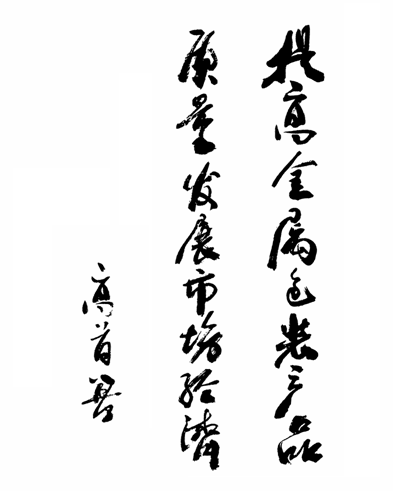 提高金属包装产品
质量发展市场经济
高首善